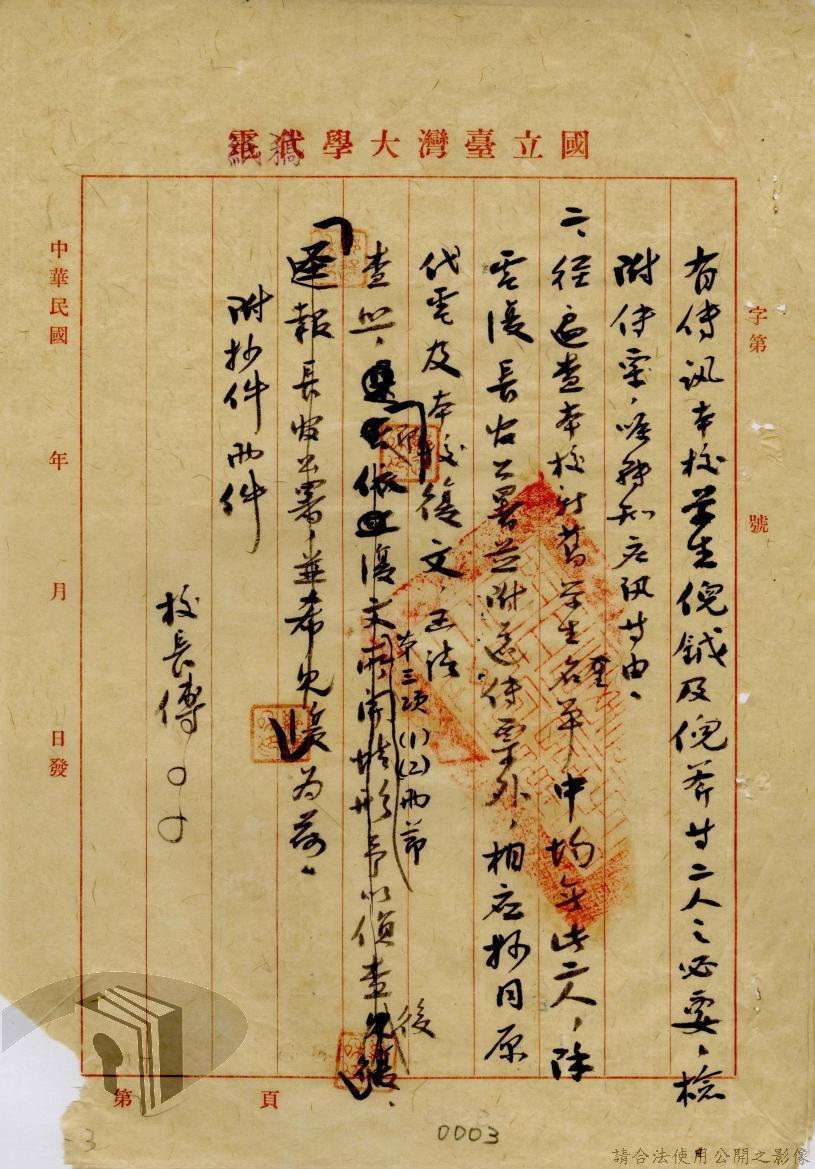 國立臺灣大學代電
稿紙
字第 號
有傳訊本校學生倪鉞及倪斧等二人之必要、檢
附傳票、唯轉知應訊等由、
二、經遍查本校新舊學生名單中均無此二人，除
電復長官公署並附送傳票外，相應抄同原
代電及本校復文，函請
查照、依復文所開情形予以偵查
第三項(1)(2)兩節
後
逕報長官公署，並希見復為荷、
附抄件兩件
校長傅○○
中華民國 年 月 日發
第 頁
0003
3
請合法使用公開之影像